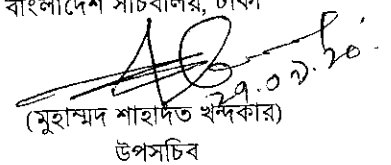 বাংলাদেশ সচিবালয়, ঢাকা
২৭.০৭.২০
(মুহাম্মদ শাহাদত খন্দকার)
উপসচিব